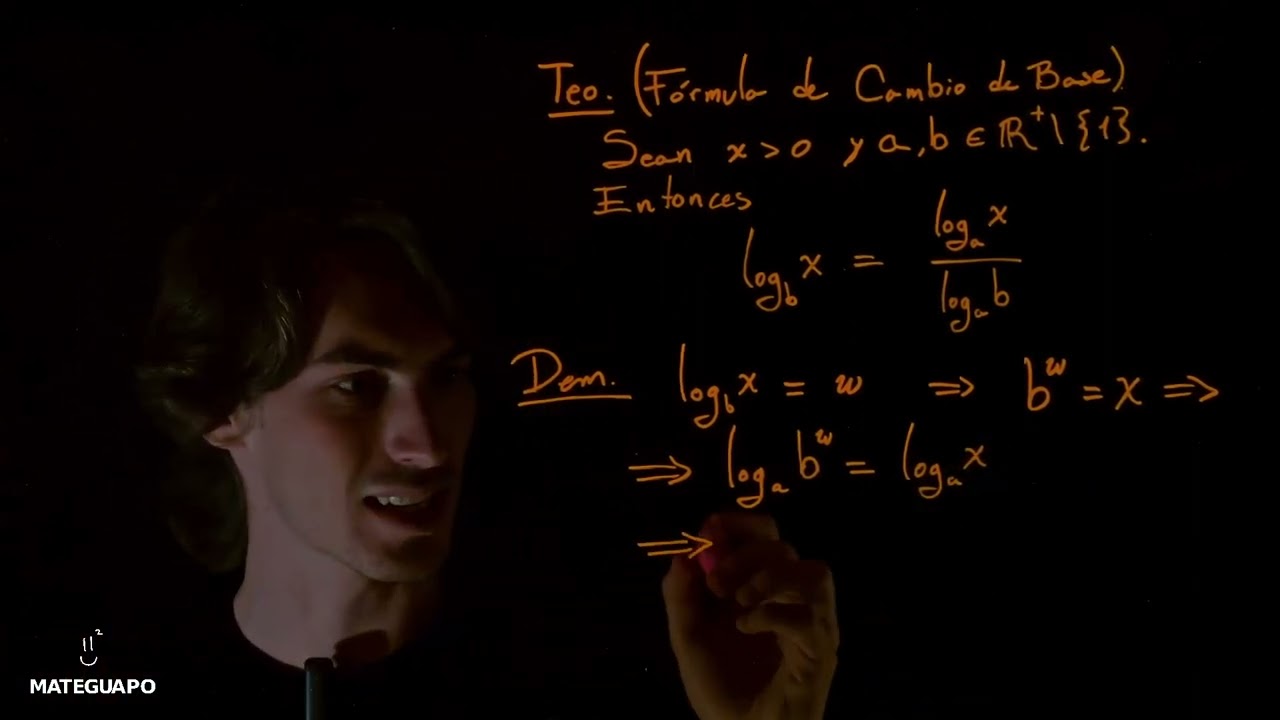 Teo. (Fórmula de Cambio de Base)
Sean x > 0 y a, b ∈ ℝ⁺ \ {1}.
Entonces
log_b x = log_a x / log_a b
Dem. log_b x = w ⇒ b^w = x ⇒
⇒ log_a b^w = log_a x
⇒
MATEGUAPO